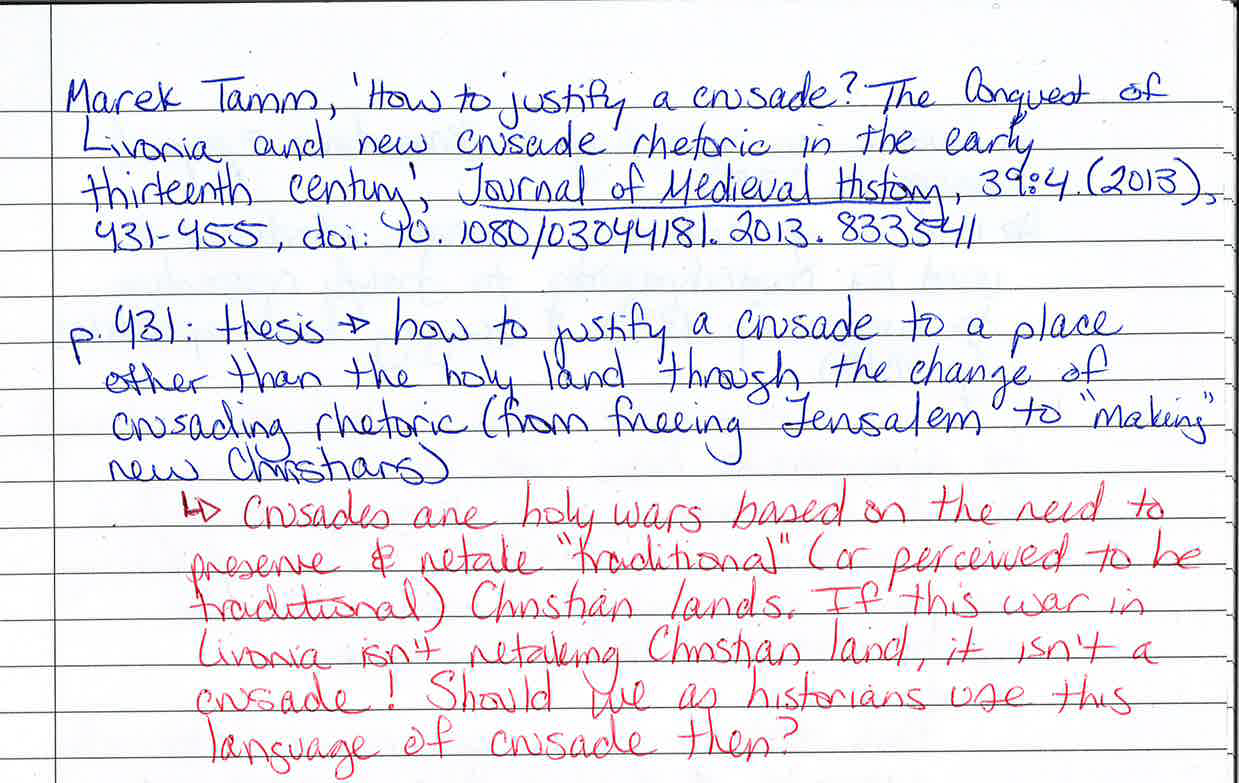 Marek Tamm, 'How to justify a crusade? The Conquest of
Livonia and new crusade rhetoric in the early
thirteenth century', Journal of Medieval History, 39:4 (2013),
431-455, doi: 10.1080/03044181.2013.833541
p. 431: thesis → how to justify a crusade to a place
other than the holy land through the change of
crusading rhetoric (from freeing Jerusalem to "making"
new Christians)
↳ Crusades are holy wars based on the need to
preserve & retake "traditional" (or perceived to be
traditional) Christian lands. If this war in
Livonia isn't retaking Christian land, it isn't a
crusade! Should we as historians use this
language of crusade then?